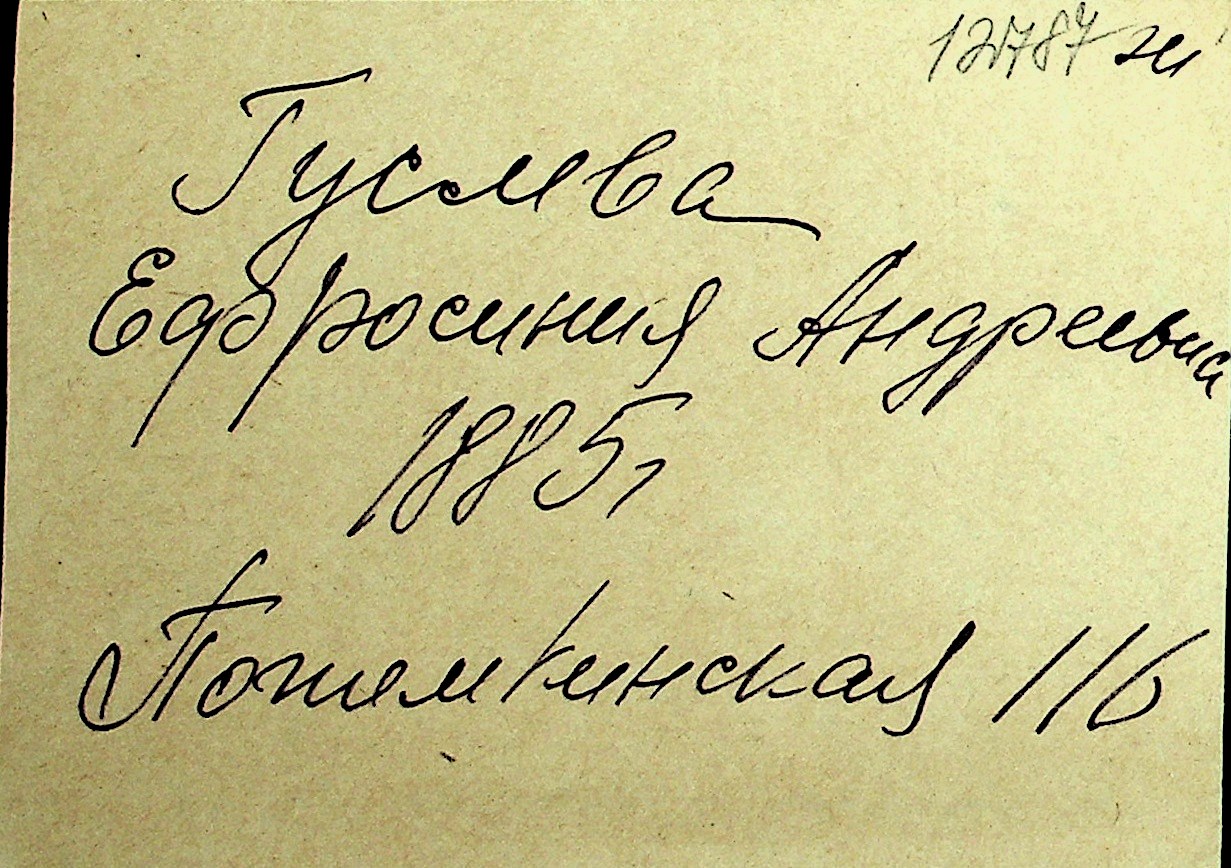 12787 ж
Гуслева
Ефросиния Андреевна
1885г
Потемкинская 116